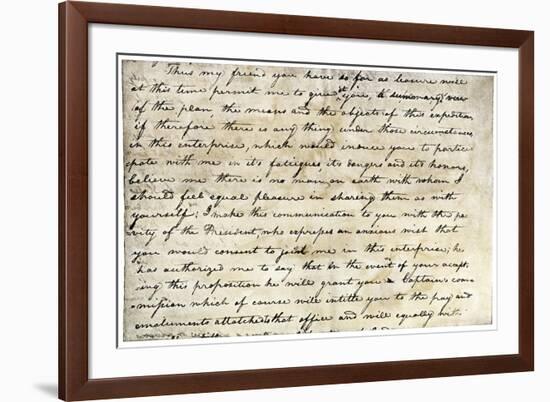 Thus my friend you have so far as leasure will
at this time permit me to give it you, a summary view
of the plan, the means and the objects of this expedition
if therefore there is any thing under those circumstances
in this enterprise, which would induce you to partici
pate with me in it's fatiegues, it's dangers and it's honors,
believe me there is no man on earth with whom I
should feel equal pleasure in sharing them as with
yourself; I make this communication to you with the pr
vity of the President, who expresses an anxious wish that
you would consent to join me in this enterprise; he
has authorized me to say that in the event of your accept
ing this proposition he will grant you a Captain's com
mission which of course will intitle you to the pay and
emoluments attached to that office and will equally with